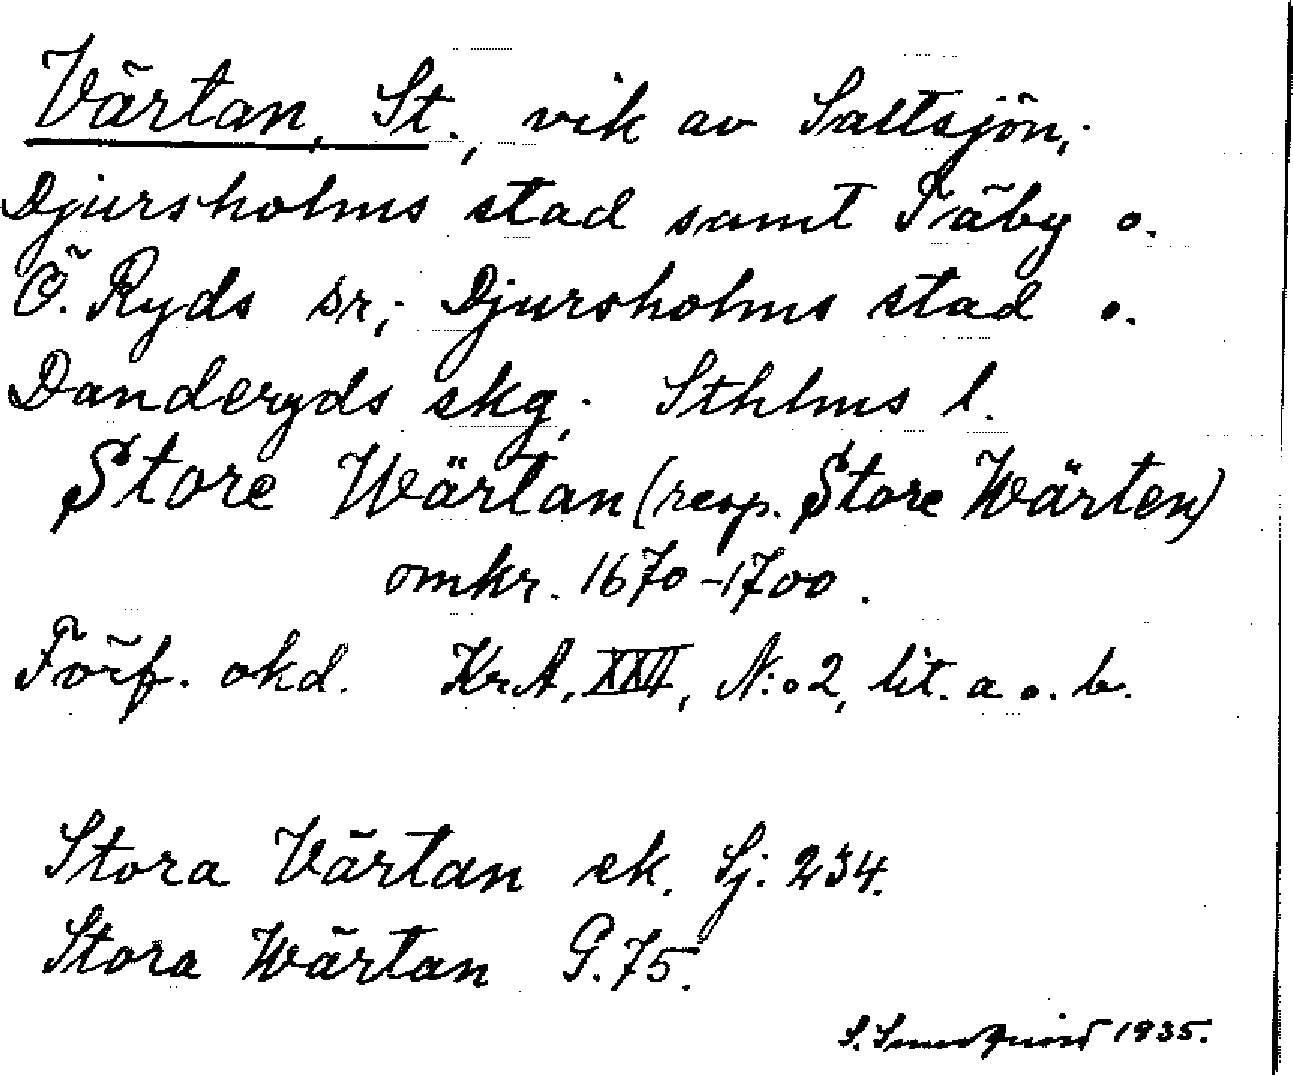 Värtan, St., vik av Saltsjön,;
Djursholms stad samt Täby o.
Ö. Ryds sr,; Djursholms stad o.
Danderyds skg,. Sthlms l.
Store Wärtan (resp. Store Wärten)
omkr. 1670-1700.
Förf. okd. KrA, XXII, N:o 2, lit. a o. b.
Stora Värtan ek. Sj. 234.
Stora Wärtan G. 75.
S. 1935.